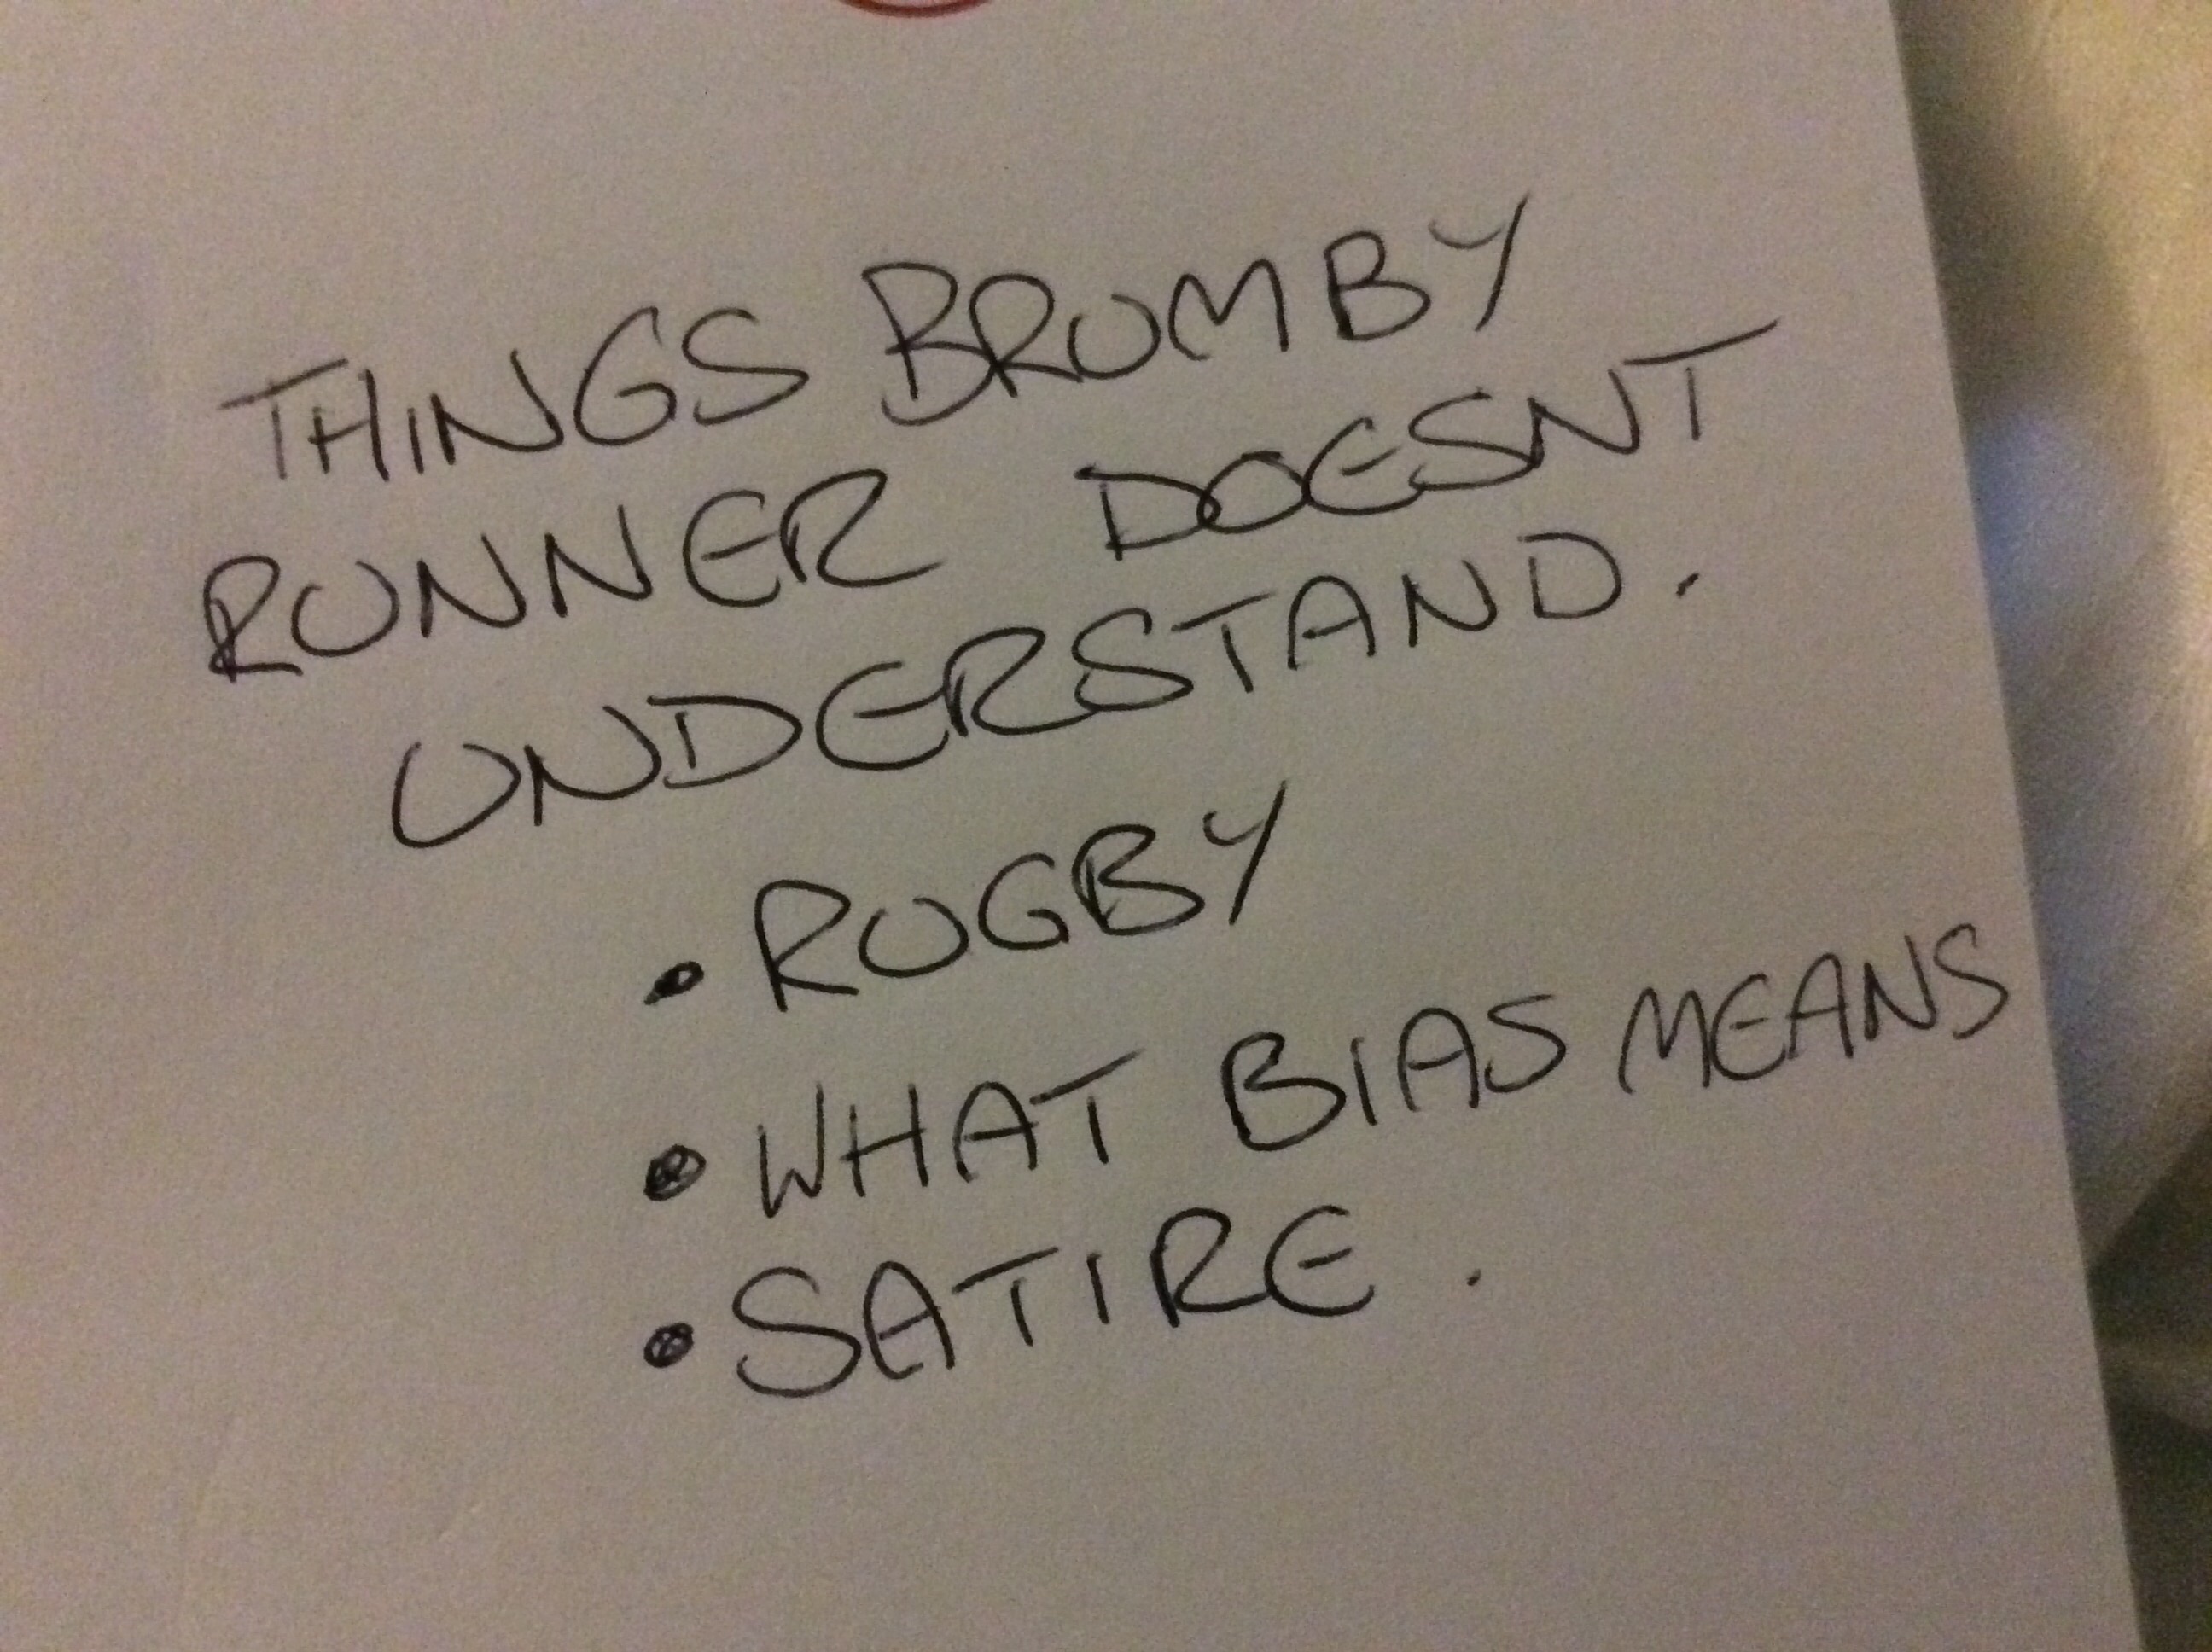 THINGS BRUMBY
RUNNER DOESNT
UNDERSTAND.
• RUGBY
• WHAT BIAS MEANS
• SATIRE.